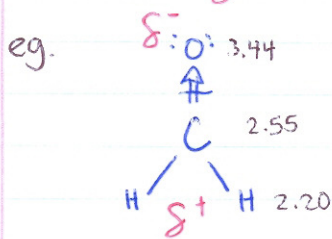 eg. δ⁻ :O: 3.44
C 2.55
H δ⁺ H 2.20